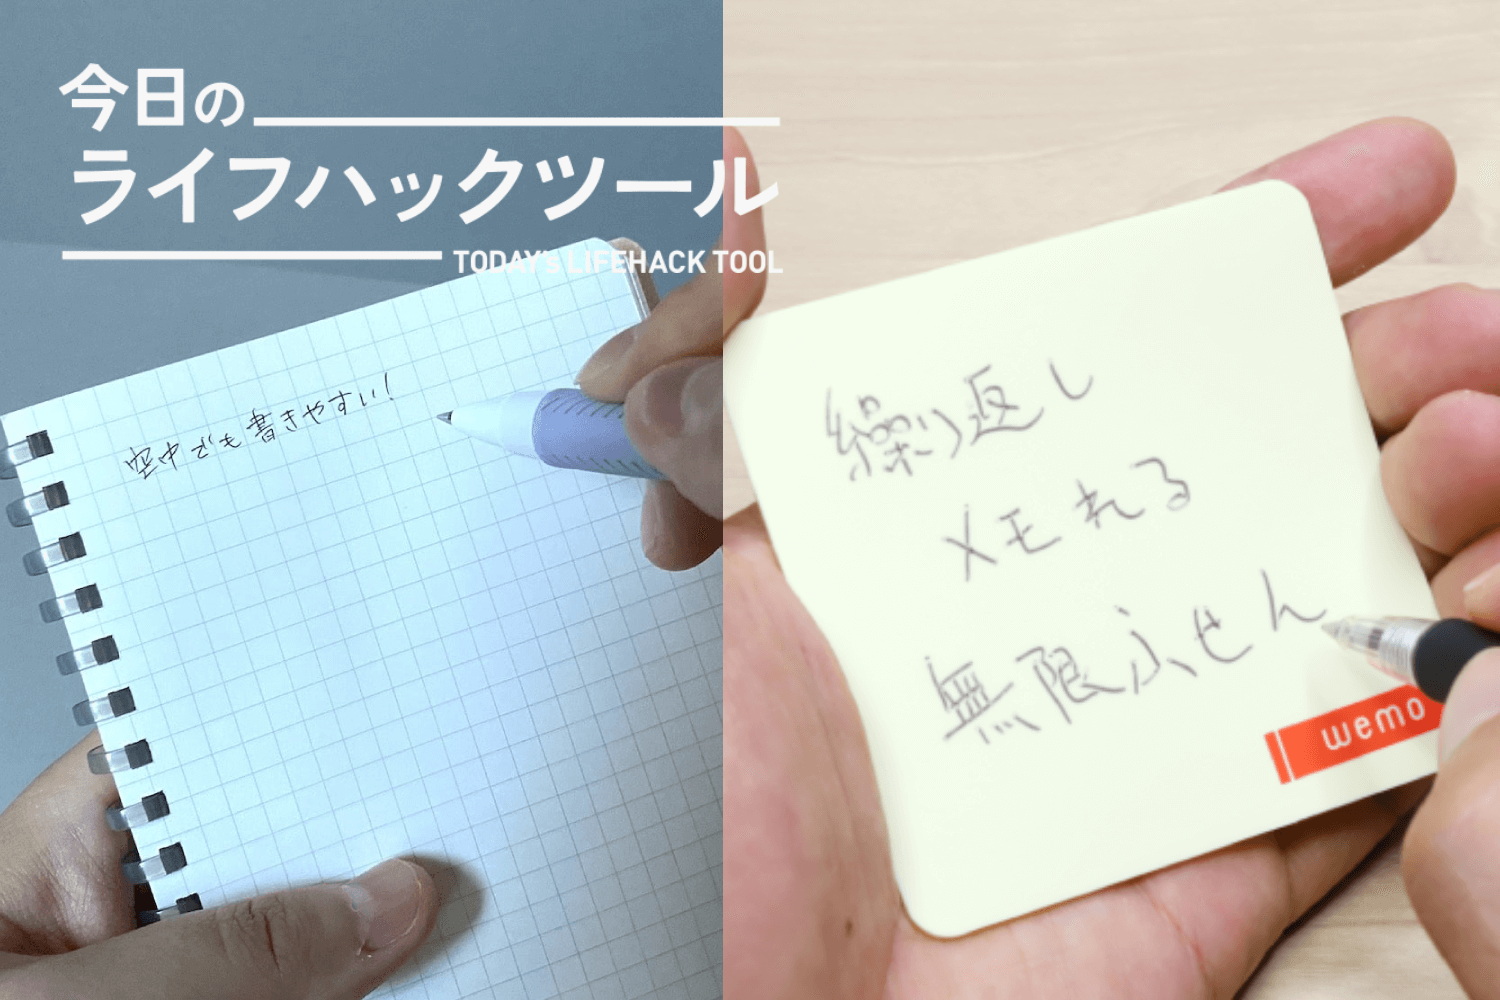 今日の
ライフハックツール
TODAY's LIFEHACK TOOL
空中でも書きやすい!
繰り返し
メモれる
無限ふせん
wemo